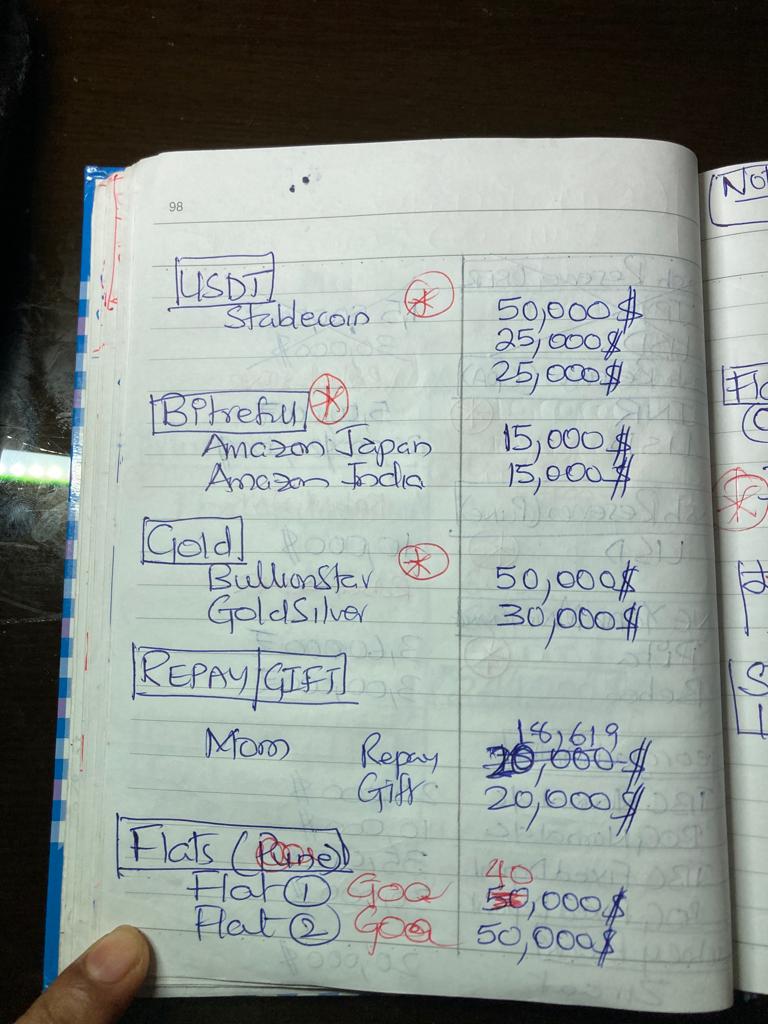 98
USDT
Stablecoin 50,000$
25,000$
25,000$
Bitrefill
Amazon Japan 15,000$
Amazon India 15,000$
Gold
BullionStar 50,000$
GoldSilver 30,000$
REPAY GIFT
18,619
Mom Repay 20,000$
Gift 20,000$
Flats (Pune)
40
Flat 1 Goa 50,000$
Flat 2 Goa 50,000$